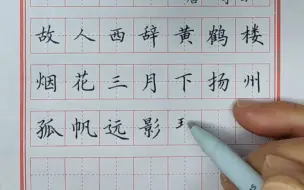 故人西辞黄鹤楼
烟花三月下扬州
孤帆远影